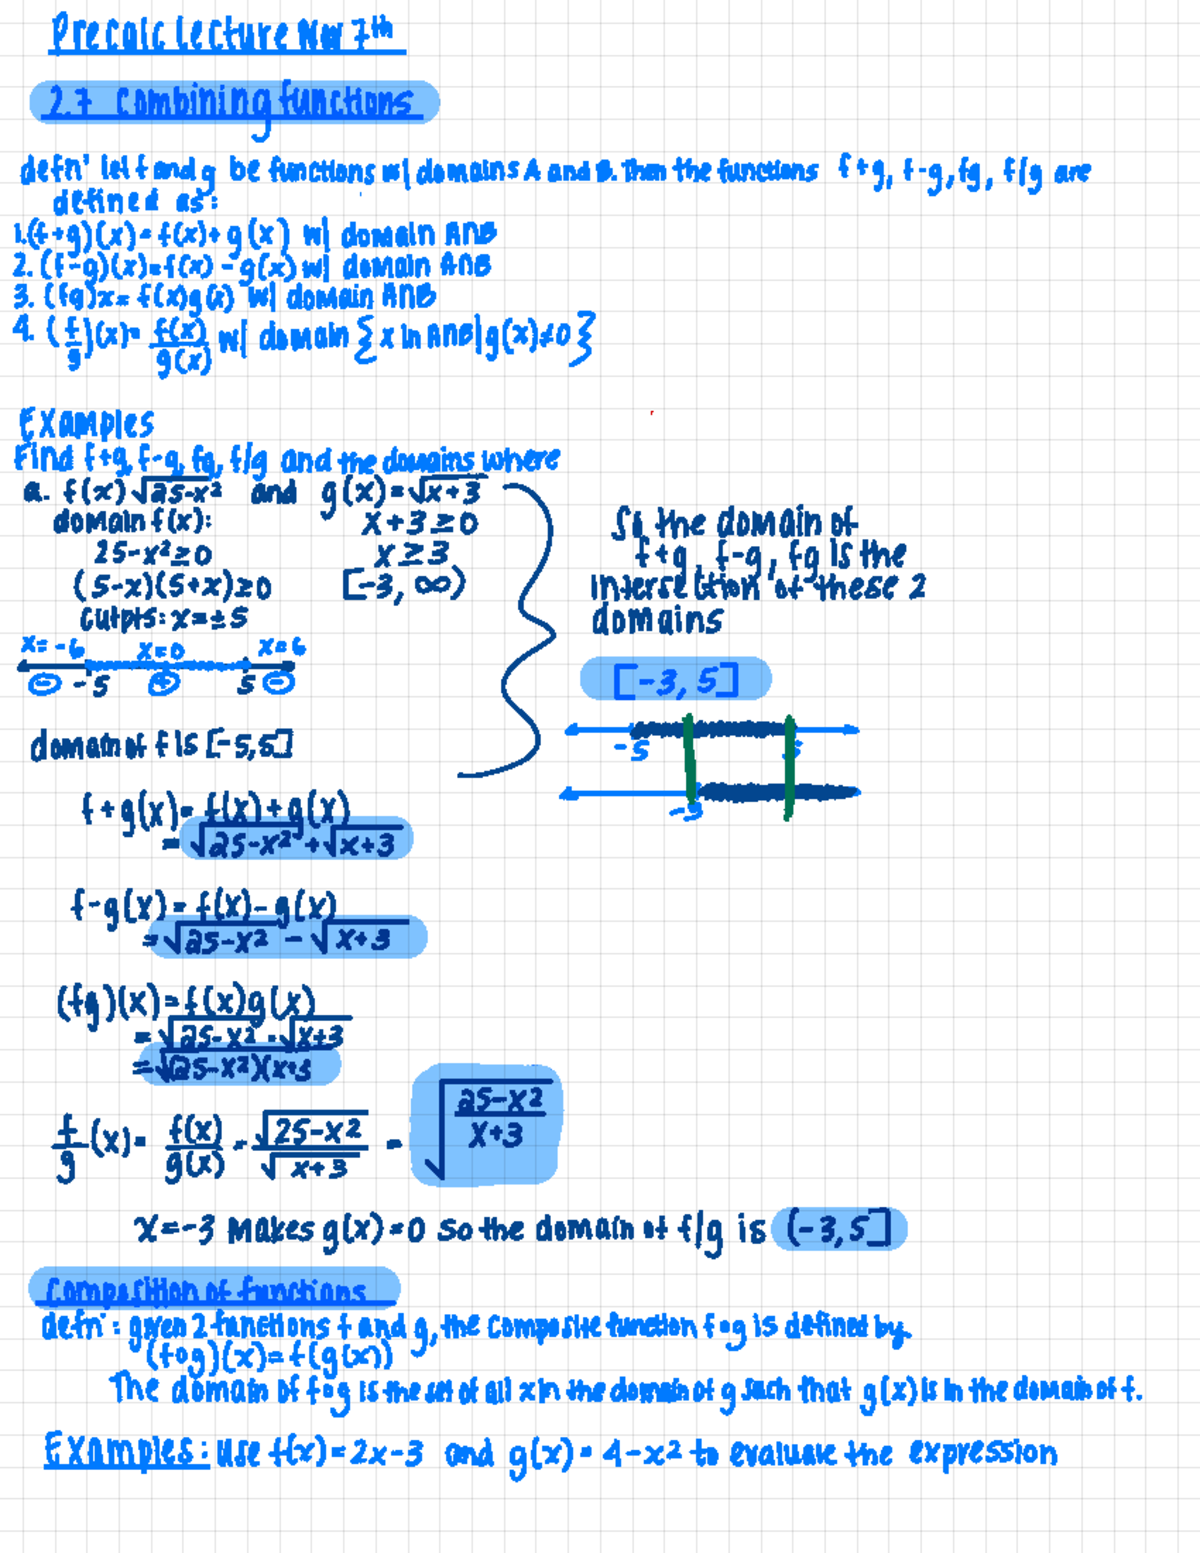 Precalc Lecture Nov 7th
2.7 Combining functions
defn' let f and g be functions w/ domains A and B. Then the functions f+g, f-g, fg, f/g are
defined as:
1.(f+g)(x)=f(x)+g(x) w/ domain A∩B
2. (f-g)(x)=f(x)-g(x) w/ domain A∩B
3. (fg)x= f(x)g(x) w/ domain A∩B
4. (f/g)(x)= f(x)/g(x) w/ domain {x in A∩B|g(x)≠0}
Examples
Find f+g, f-g, fg, f/g and the domains where
a. f(x) √25-x² and g(x)=√x+3
domain f(x): x+3≥0
25-x²≥0 x≥3
(5-x)(5+x)≥0 [-3, ∞)
cutpts: x=±5
x=-6 x=0 x=6
- -5 + 5 -
domain of f is [-5,5]
So the domain of
f+g, f-g, fg is the
intersection of these 2
domains
[-3, 5]
-5 5
-3
f+g(x)= f(x)+g(x)
= √25-x² + √x+3
f-g(x)= f(x)-g(x)
= √25-x² - √x+3
(fg)(x)=f(x)g(x)
= √25-x² · √x+3
= √(25-x²)(x+3
f/g (x)= f(x)/g(x) = √25-x²/√x+3 = √25-x²/x+3
x=-3 makes g(x)=0 so the domain of f/g is (-3,5]
Composition of functions
defn: given 2 functions f and g, the composite function f∘g is defined by.
(f∘g)(x)=f(g(x))
The domain of f∘g is the set of all x in the domain of g such that g(x) is in the domain of f.
Examples: use f(x)=2x-3 and g(x)=4-x² to evaluate the expression